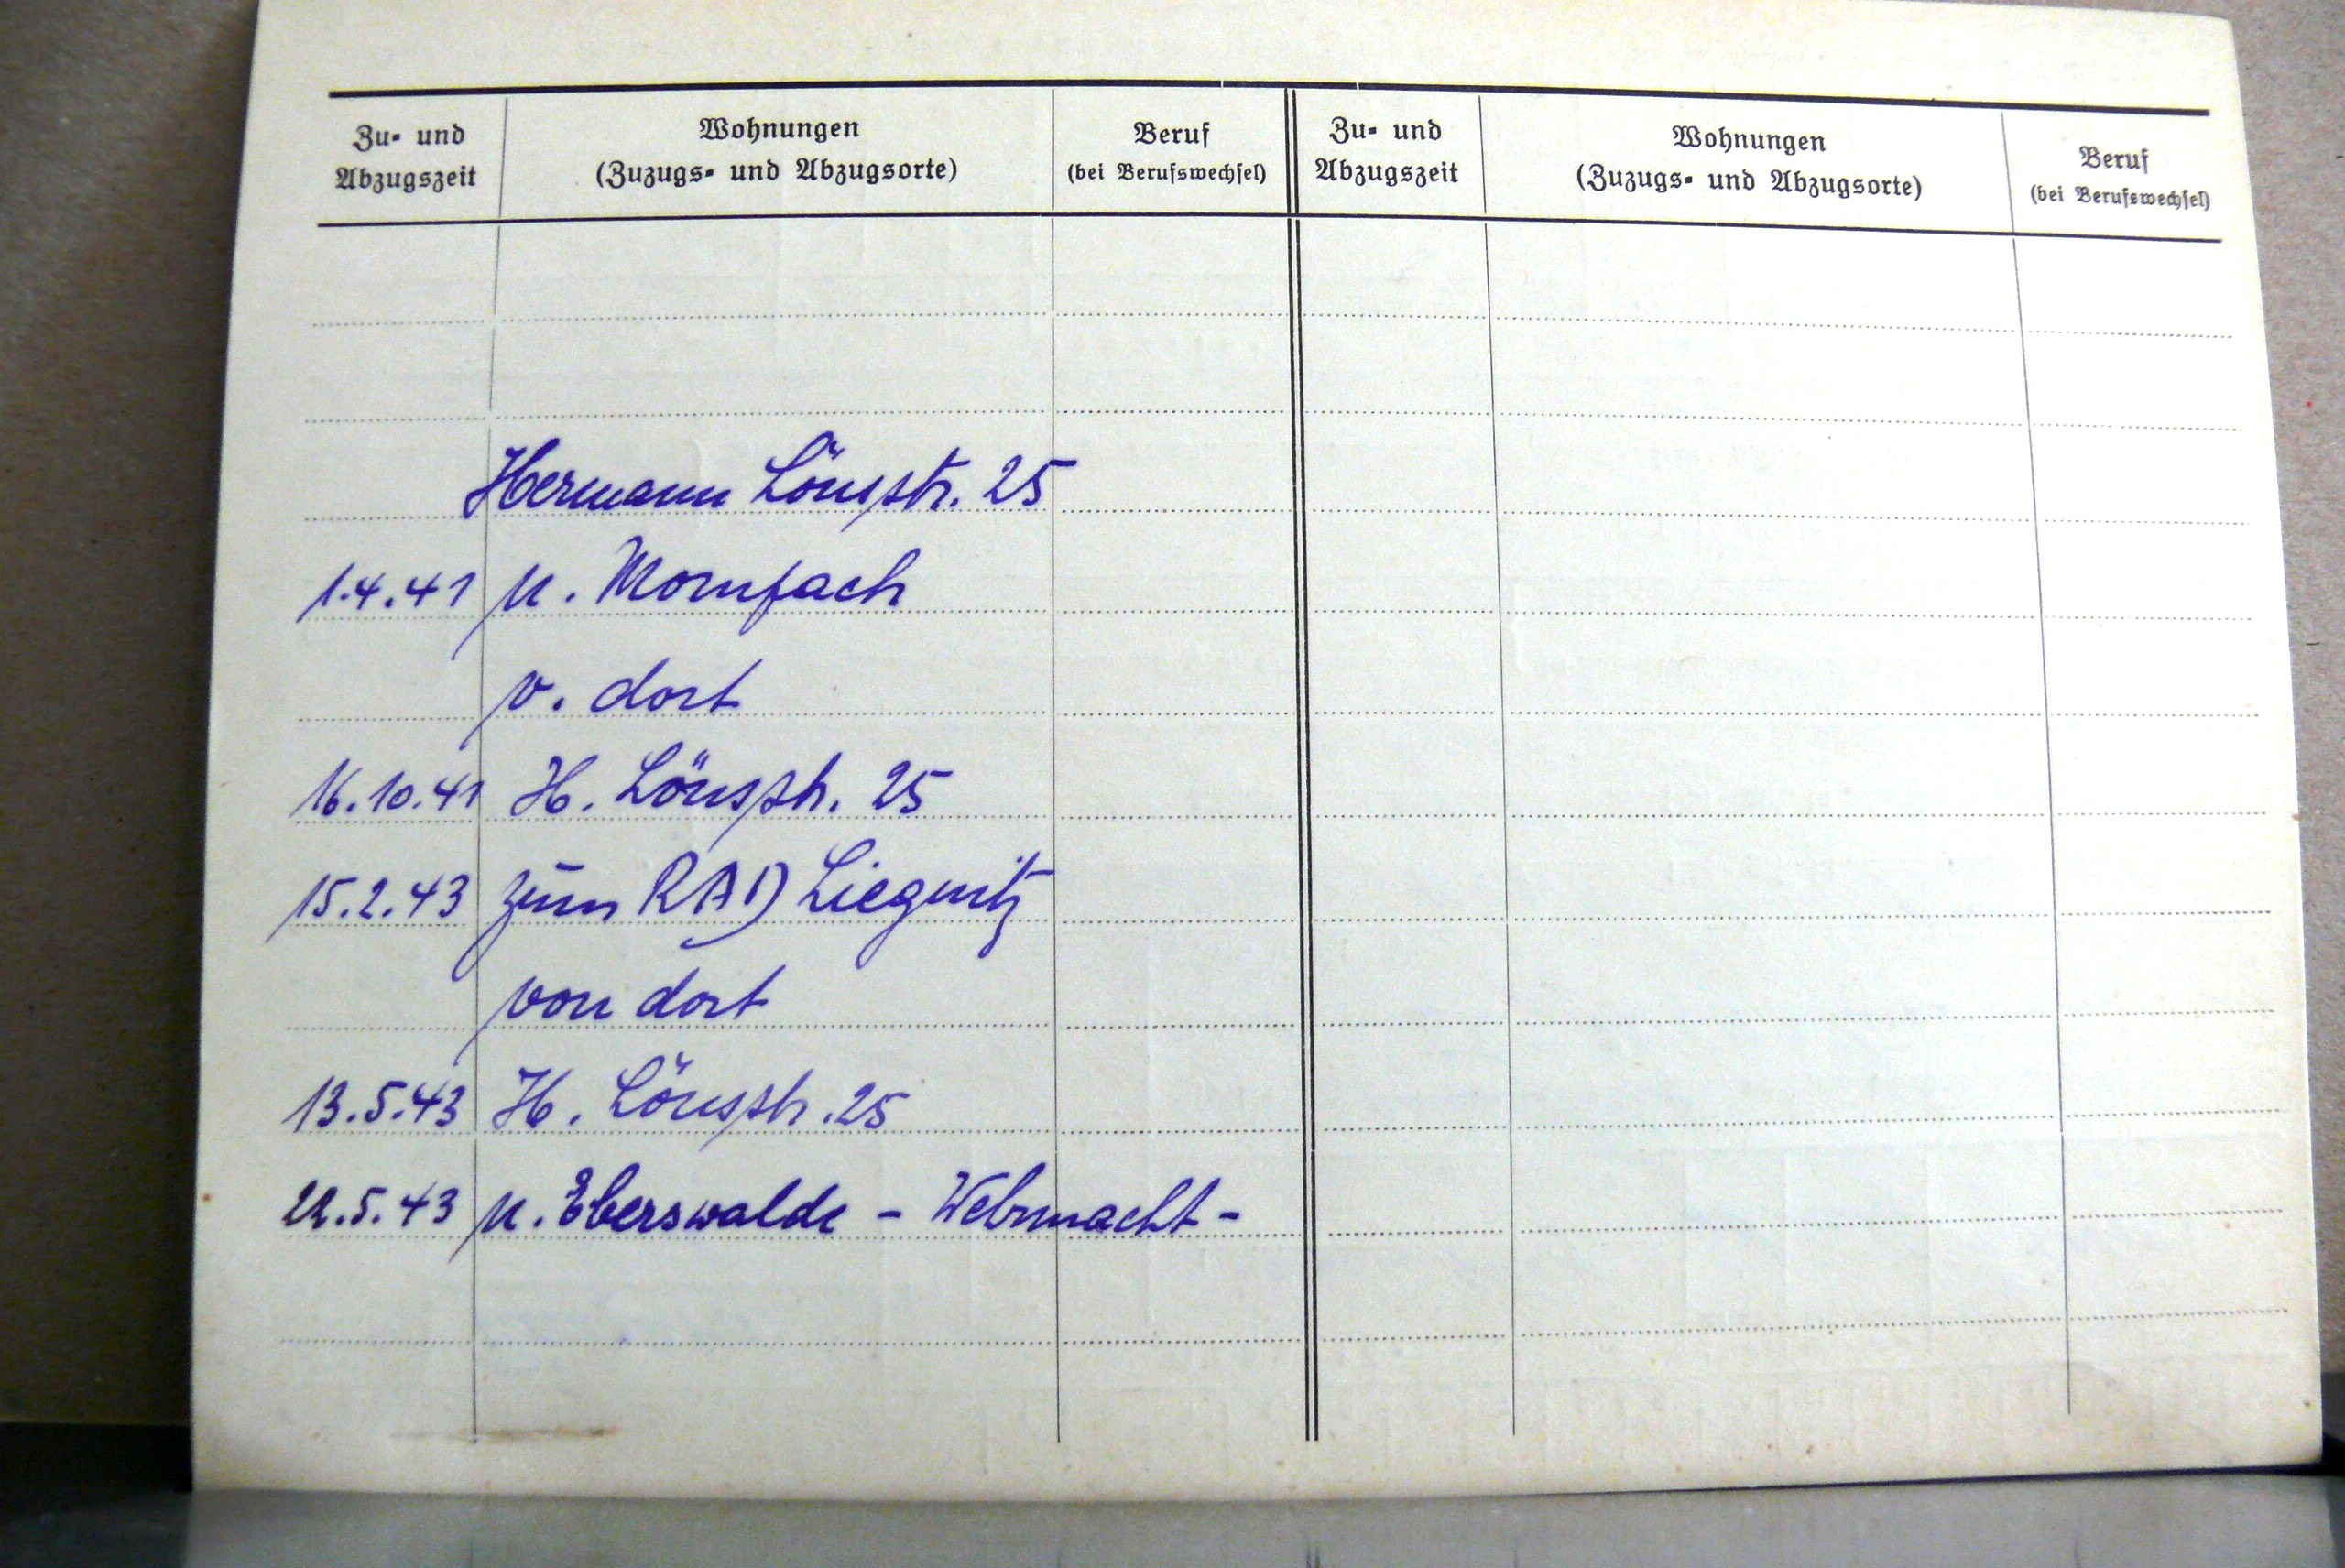 Zu- und Abzugszeit
Wohnungen
(Zuzugs- und Abzugsorte)
Beruf
(bei Berufswechsel)
Zu- und Abzugszeit
Wohnungen
(Zuzugs- und Abzugsorte)
Beruf
(bei Berufswechsel)
Hermann Lönsstr. 25
1.4.41 n.
v. dort
16.10.41 H. Lönsstr. 25
15.2.43 zum RAD Liegnitz
von dort
13.5.43 H. Lönsstr. 25
.5.43 n. Eberswalde - Wehrmacht -